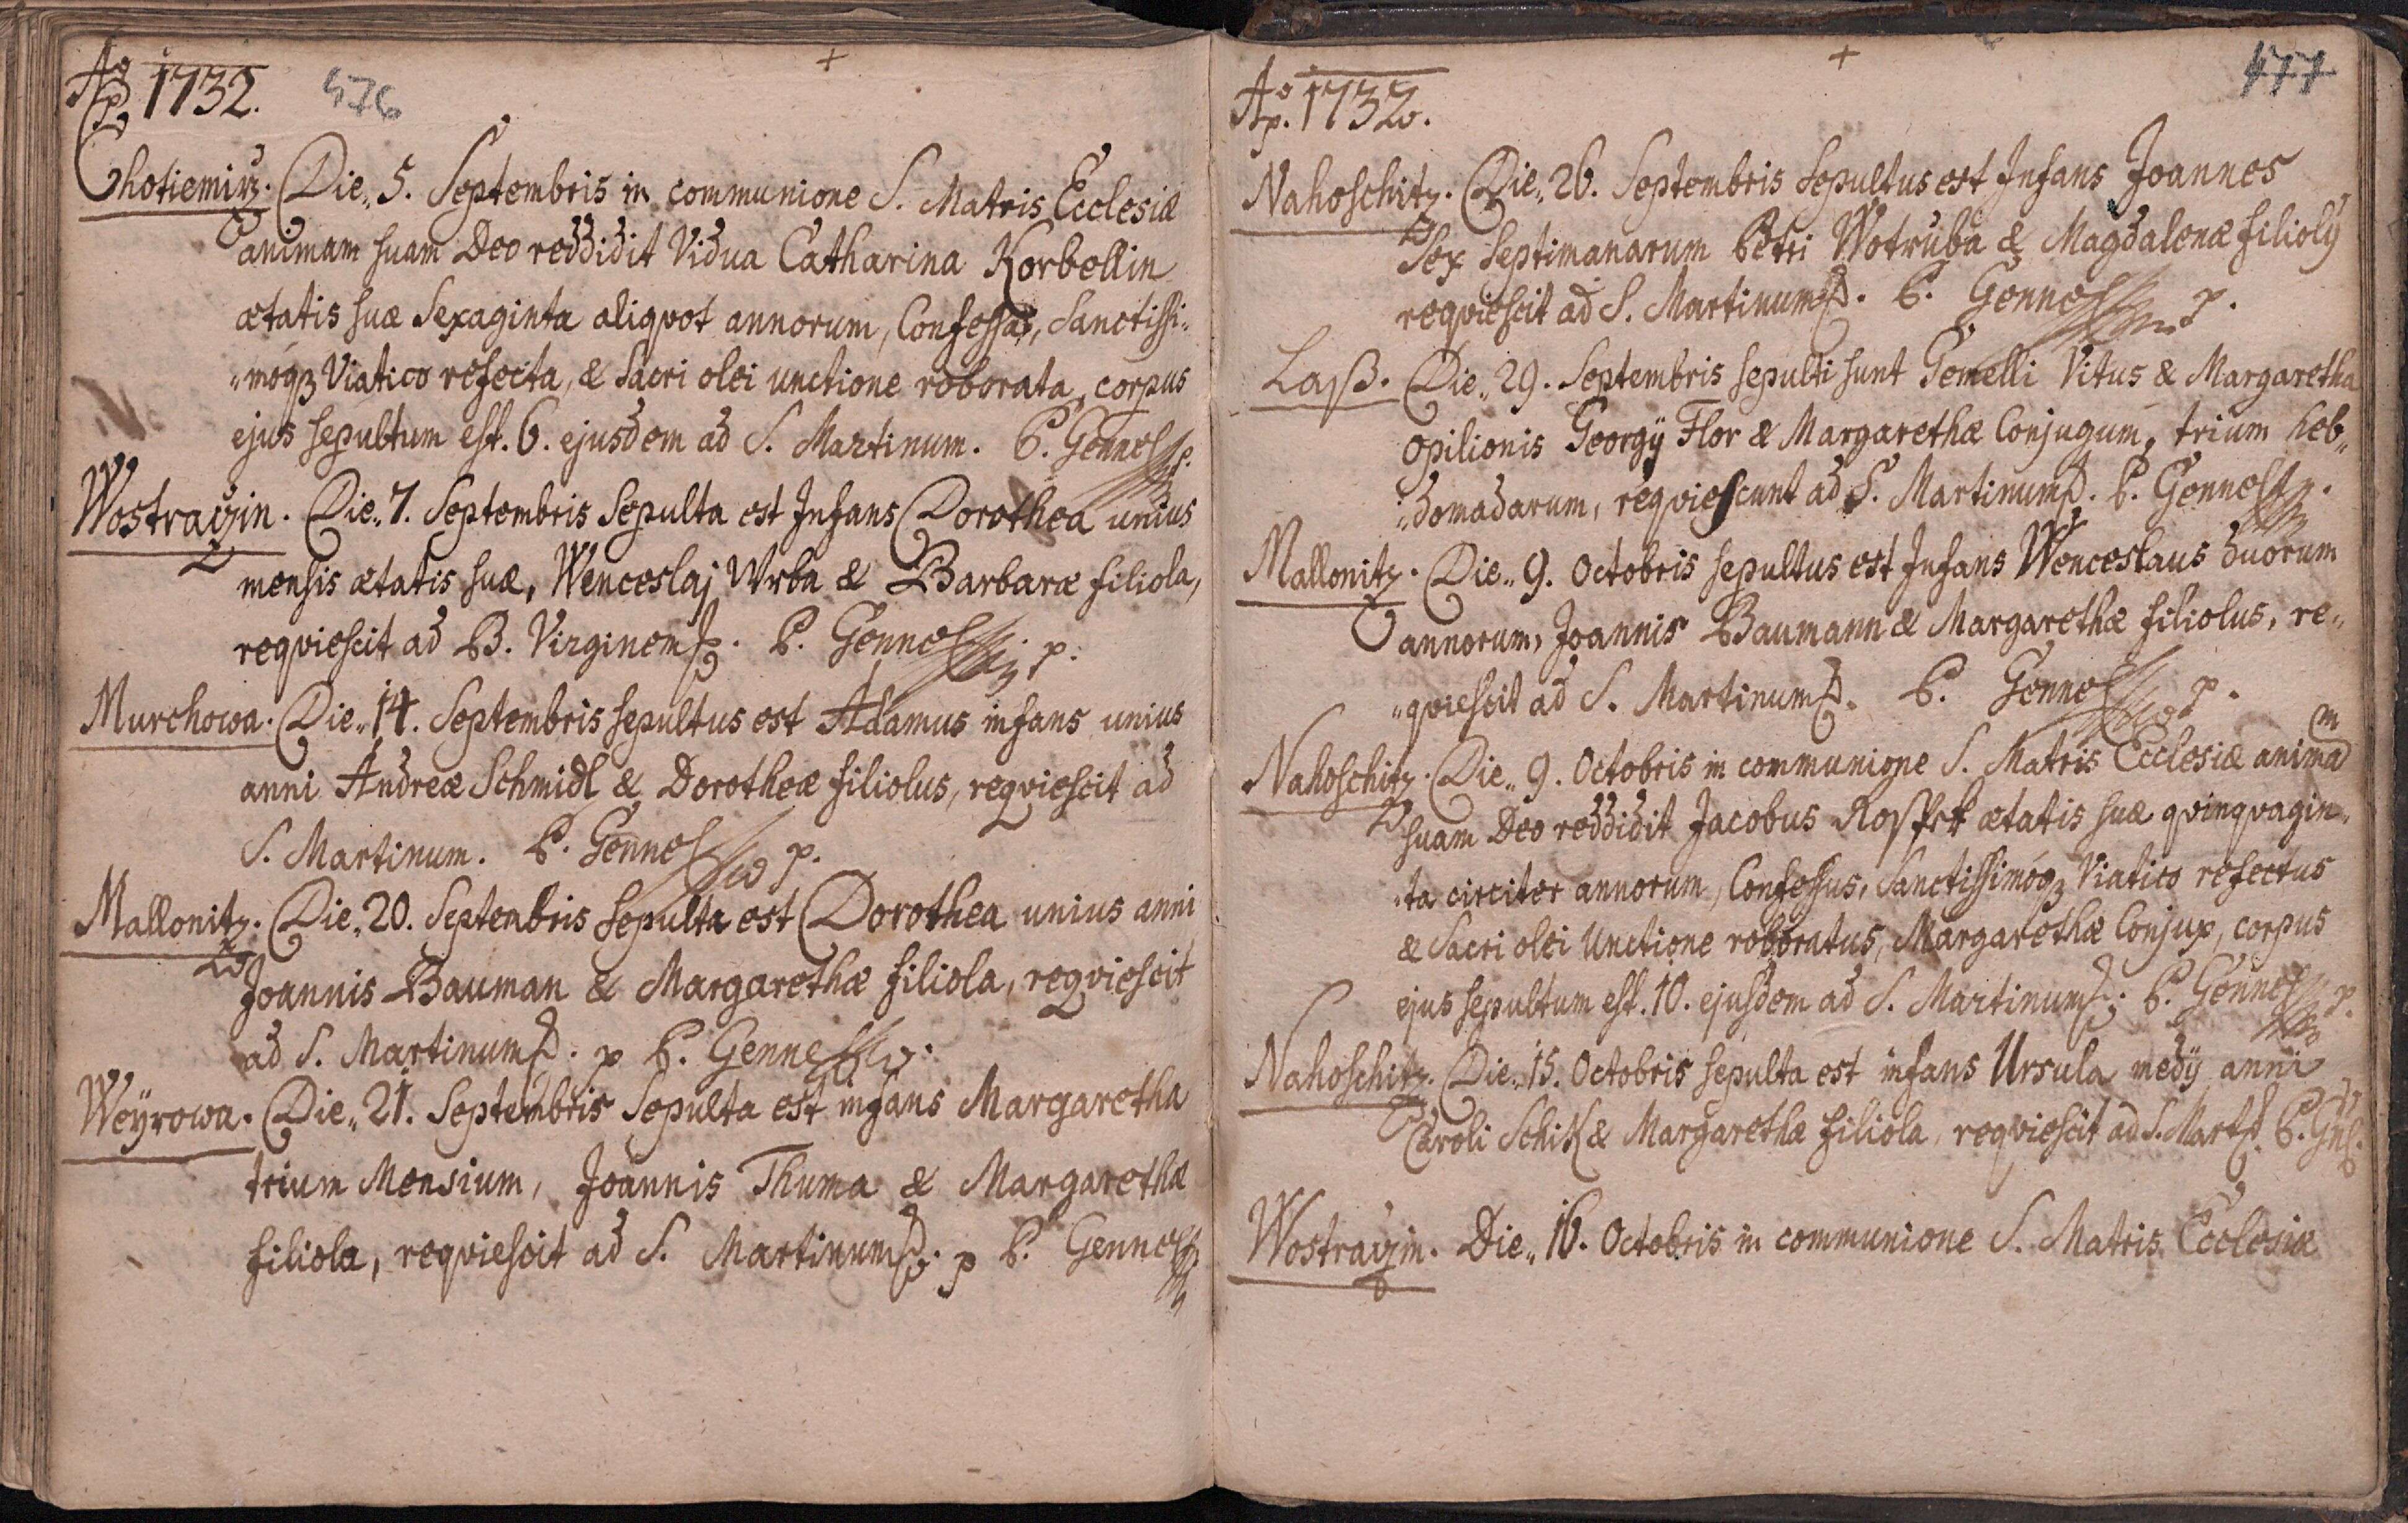 Ao 1732. 476
Chotiemirz. Die„ 5. Septembris in communione S. Matris Ecclesiæ
animam suam Deo reddidit Vidua Catharina Korbellin
ætatis suæ Sexaginta aliqvot annorum, Confessa, Sanctissi„
„moq3 Viatico refecta, & Sacri olei unctione roborata, corpus
ejus sepultum est. 6. ejusdem ad S. Martinum. P. Gennes
Wostraczin. Die„ 7. Septembris Sepulta est Infans Dorothea unius
mensis ætatis suæ, Wenceslaj Wrba & Barbaræ filiola,
reqviescit ad B. Virginem. P. Gennes p.
Murchowa. Die„ 14. Septembris sepultus est Adamus infans unius
anni Andreæ Schmidl & Dorotheæ filiolus, reqviescit ad
S. Martinum. P. Gennes p.
Mallonitz. Die„ 20. Septembris Sepulta est Dorothea unius anni
Joannis Bauman & Margarethæ filiola, reqviescit
ad S. Martinum. p P. Gennes
Weÿrowa. Die„ 21. Septembris Sepulta est infans Margaretha
trium Mensium, Joannis Thuma & Margarethæ
filiola, reqviescit ad S. Martinum. p P. Gennes
Ao 1732. 477
Nahoschitz. Die„ 26. Septembris Sepultus est Infans Joannes
Sex Septimanarum Petri Wotruba & Magdalenæ filiolÿ
reqviescit ad S. Martinum. P. Gennes p.
Laß. Die„ 29. Septembris sepulti sunt Gemelli Vitus & Margaretha
opilionis Georgÿ Flor & Margarethæ Conjugum, trium heb„
„domadarum, reqviescunt ad S. Martinum. P. Gennes
Mallonitz. Die„ 9. Octobris sepultus est Infans Wenceslaus duorum
annorum, Joannis Baumann & Margarethæ filiolus, re„
„qviescit ad S. Martinum. P. Gennes p.
Nahoschitz. Die„ 9. Octobris in communione S. Matris Ecclesiæ animam
suam Deo reddidit Jacobus ætatis suæ qvinqvagin„
„ta circiter annorum, Confessus, Sanctissimoq3 Viatico refectus
& Sacri olei Unctione roboratus, Margarethæ Conjux, corpus
ejus sepultum est. 10. ejusdem ad S. Martinum. P. Gennes p.
Nahoschitz. Die„ 15. Octobris sepulta est infans Ursula medÿ anni
Caroli & Margarethæ filiola, reqviescit ad S. Mart. P.
Wostraczin. Die„ 16. Octobris in communione S. Matris Ecclesiæ